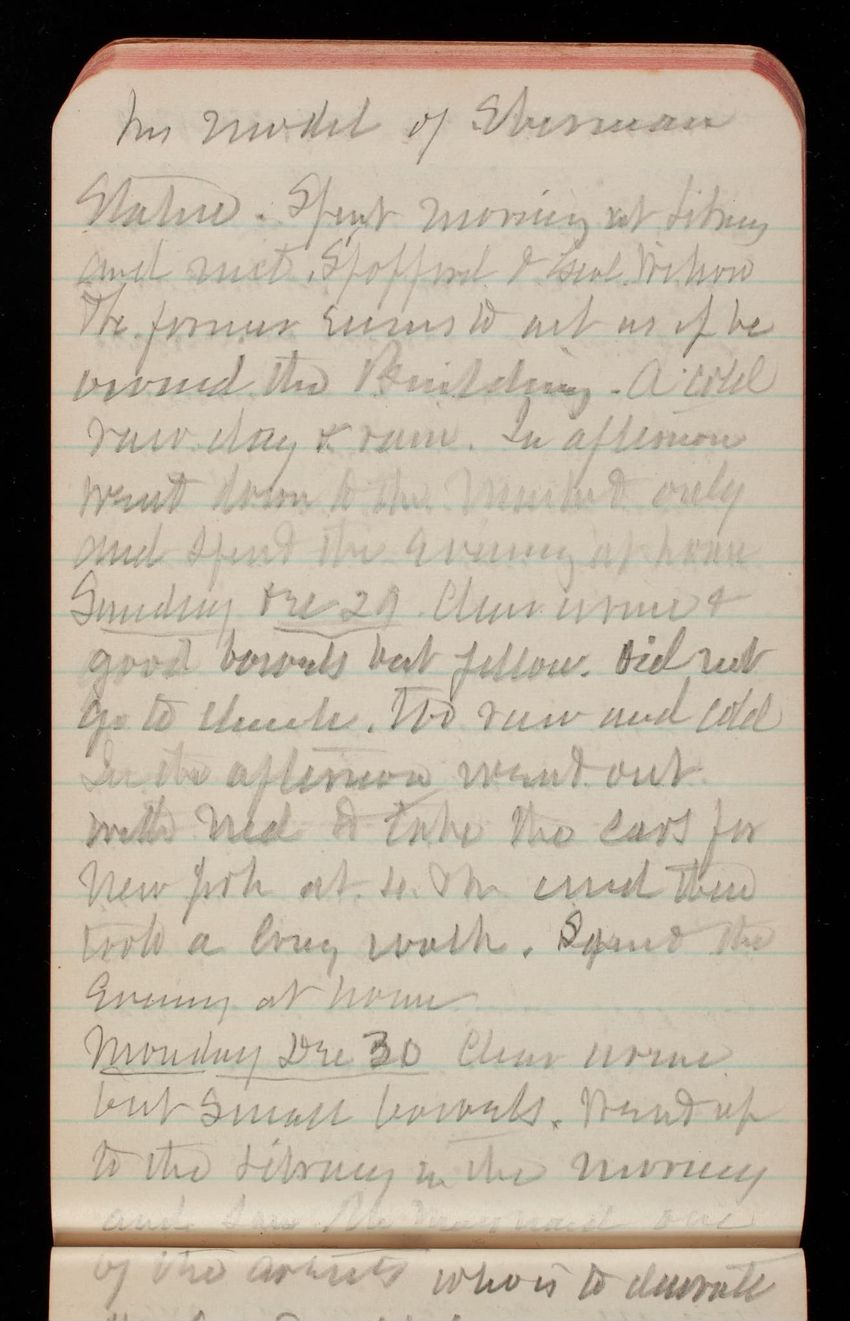 his model of Sherman
Statue. Spent morning at Library
and met Spofford & Genl. Wilson
The former seems to act as if he
owned the Building. A cold
raw day & rain. In afternoon
went down to the Market only
and spend the evening at home
Sunday Dec 29 Clear urine &
good bowels but yellow. Did not
go to church. Too raw and cold
In the afternoon went out
with Ned to take the cars for
New York at 4. and then
took a long walk. Spend the
evening at home
Monday Dec 30 Clear urine
but small bowels. Went up
to the Library in the morning
and saw one
of the artists who is to decorate